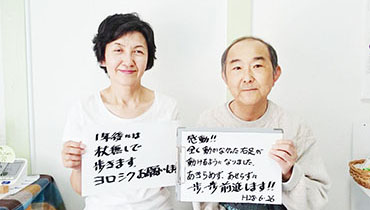 1年後には
杖無しで
歩きます。
ヨロシクお願いします
感動!!
全く動かなかった右足が
動けるようになりました。
あきらめず、あせらずに
一歩、一歩前進します!!
H28.6.26